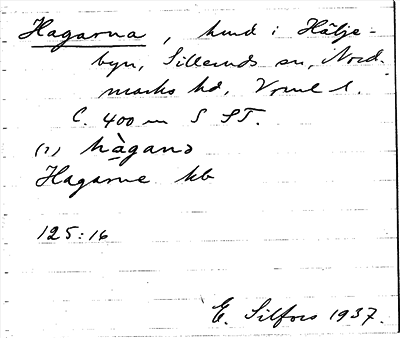 Hagarna, hmd i Hälje-
byn, Silleruds sn, Nord-
marks hd, Vrml l.
C. 400 m S ST.
(1) hàgana
Hagarne kb
125:16
E. Silfors 1937.